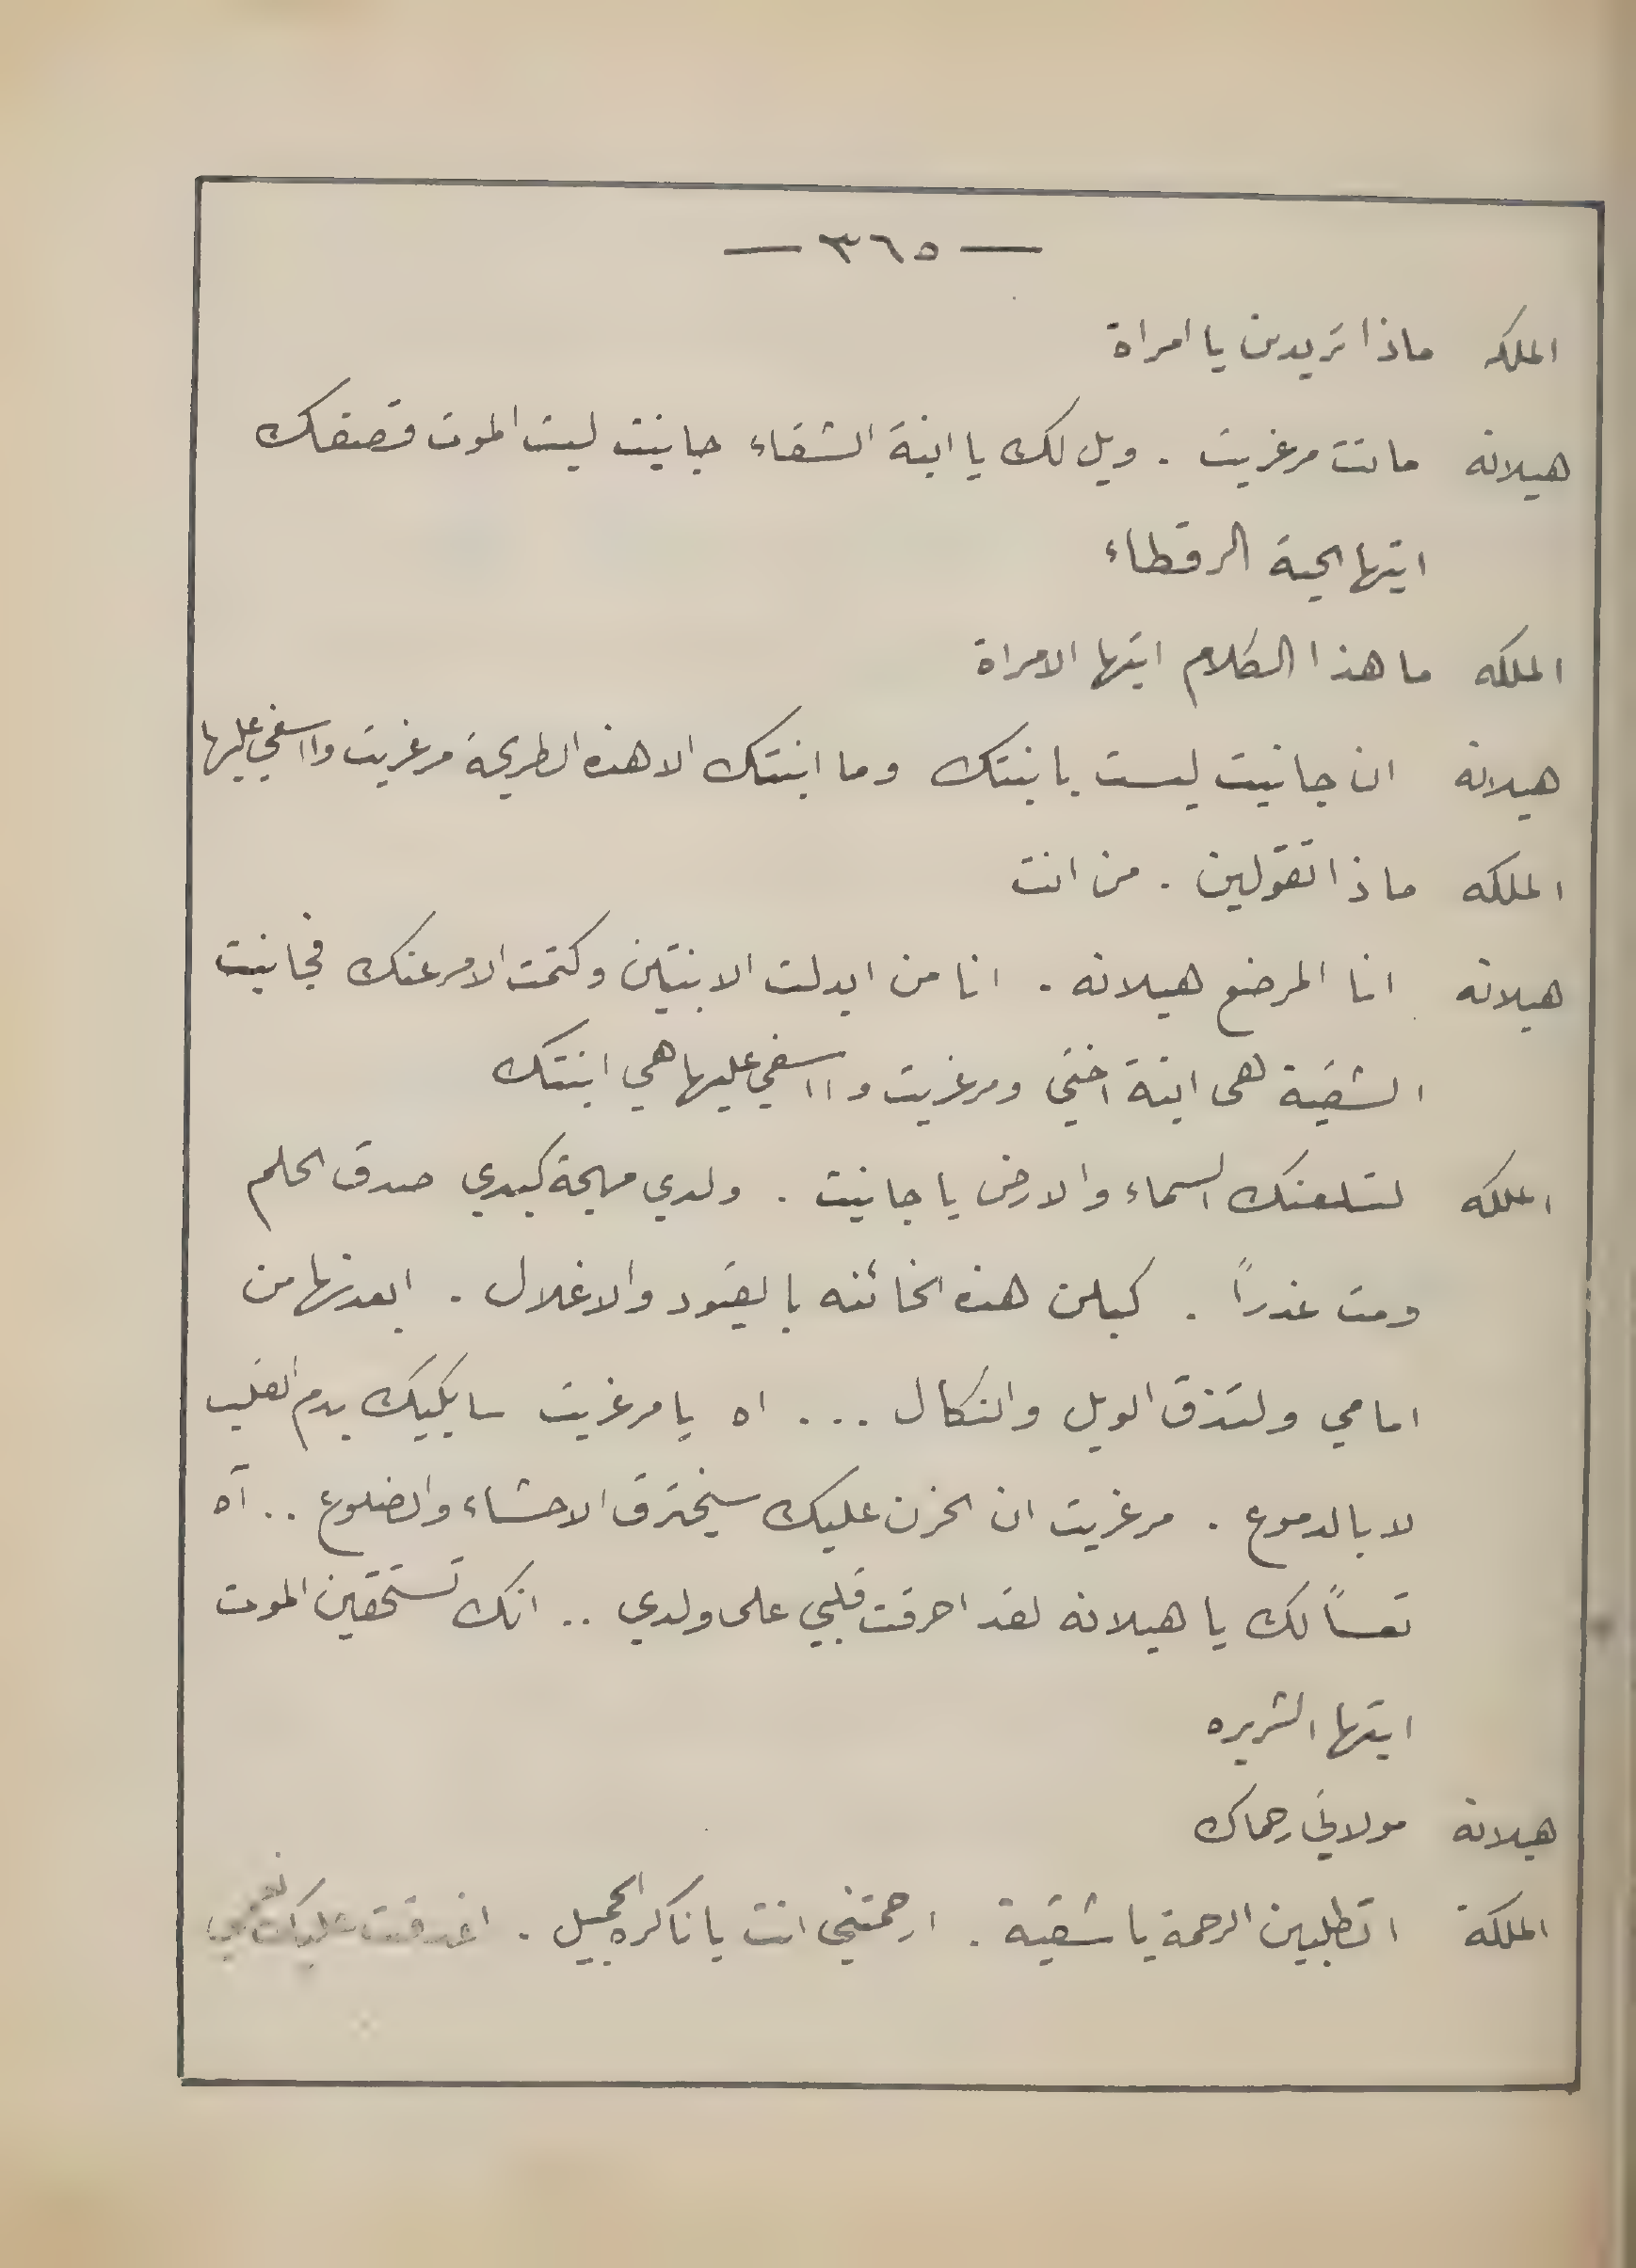 — ٣٦٥ —
الملكه ماذا تريدين يا امراة
هيلانة ماتت مرغريت . ويل لك يا ابنة الشقاء جانيت ليت الموت قصفك
ايتها الحية الرقطاء
الملكه ما هذا الكلام ايتها الامراة
هيلانة ان جانيت ليست بابنتك وما ابنتك الا هذه الطريحة مرغريت وا اسفي عليها
الملكه ماذا تقولين . من انت
هيلانة انا المرضع هيلانه . انا من ابدلت الابنتين وكتمت الامر عنك فجانيت
الشقية هى ابنة اختي ومرغريت وا اسفي عليها هي ابنتك
الملكه لتلعنك السماء والارض يا جانيت . ولدي مهجة كبدي صدق الحلم
ومت غدراً . كبلن هذه الخائنه بالقيود والاغلال . ابعدنها من
امامي ولتذق الويل والنكال ... اه يا مرغريت سابكيك بدم القلب
لا بالدموع . مرغريت ان الحزن عليك سيخترق الاحشاء والضلوع .. آه
تعساً لك يا هيلانه لقد احرقت قلبي على ولدي .. انك تستحقين الموت
ايتها الشريره
هيلانة مولاتي رحماك
الملكة اتطلبين الرحمة يا شقية . ارحمتني انت يا ناكره الجميل . اغدقت عليك